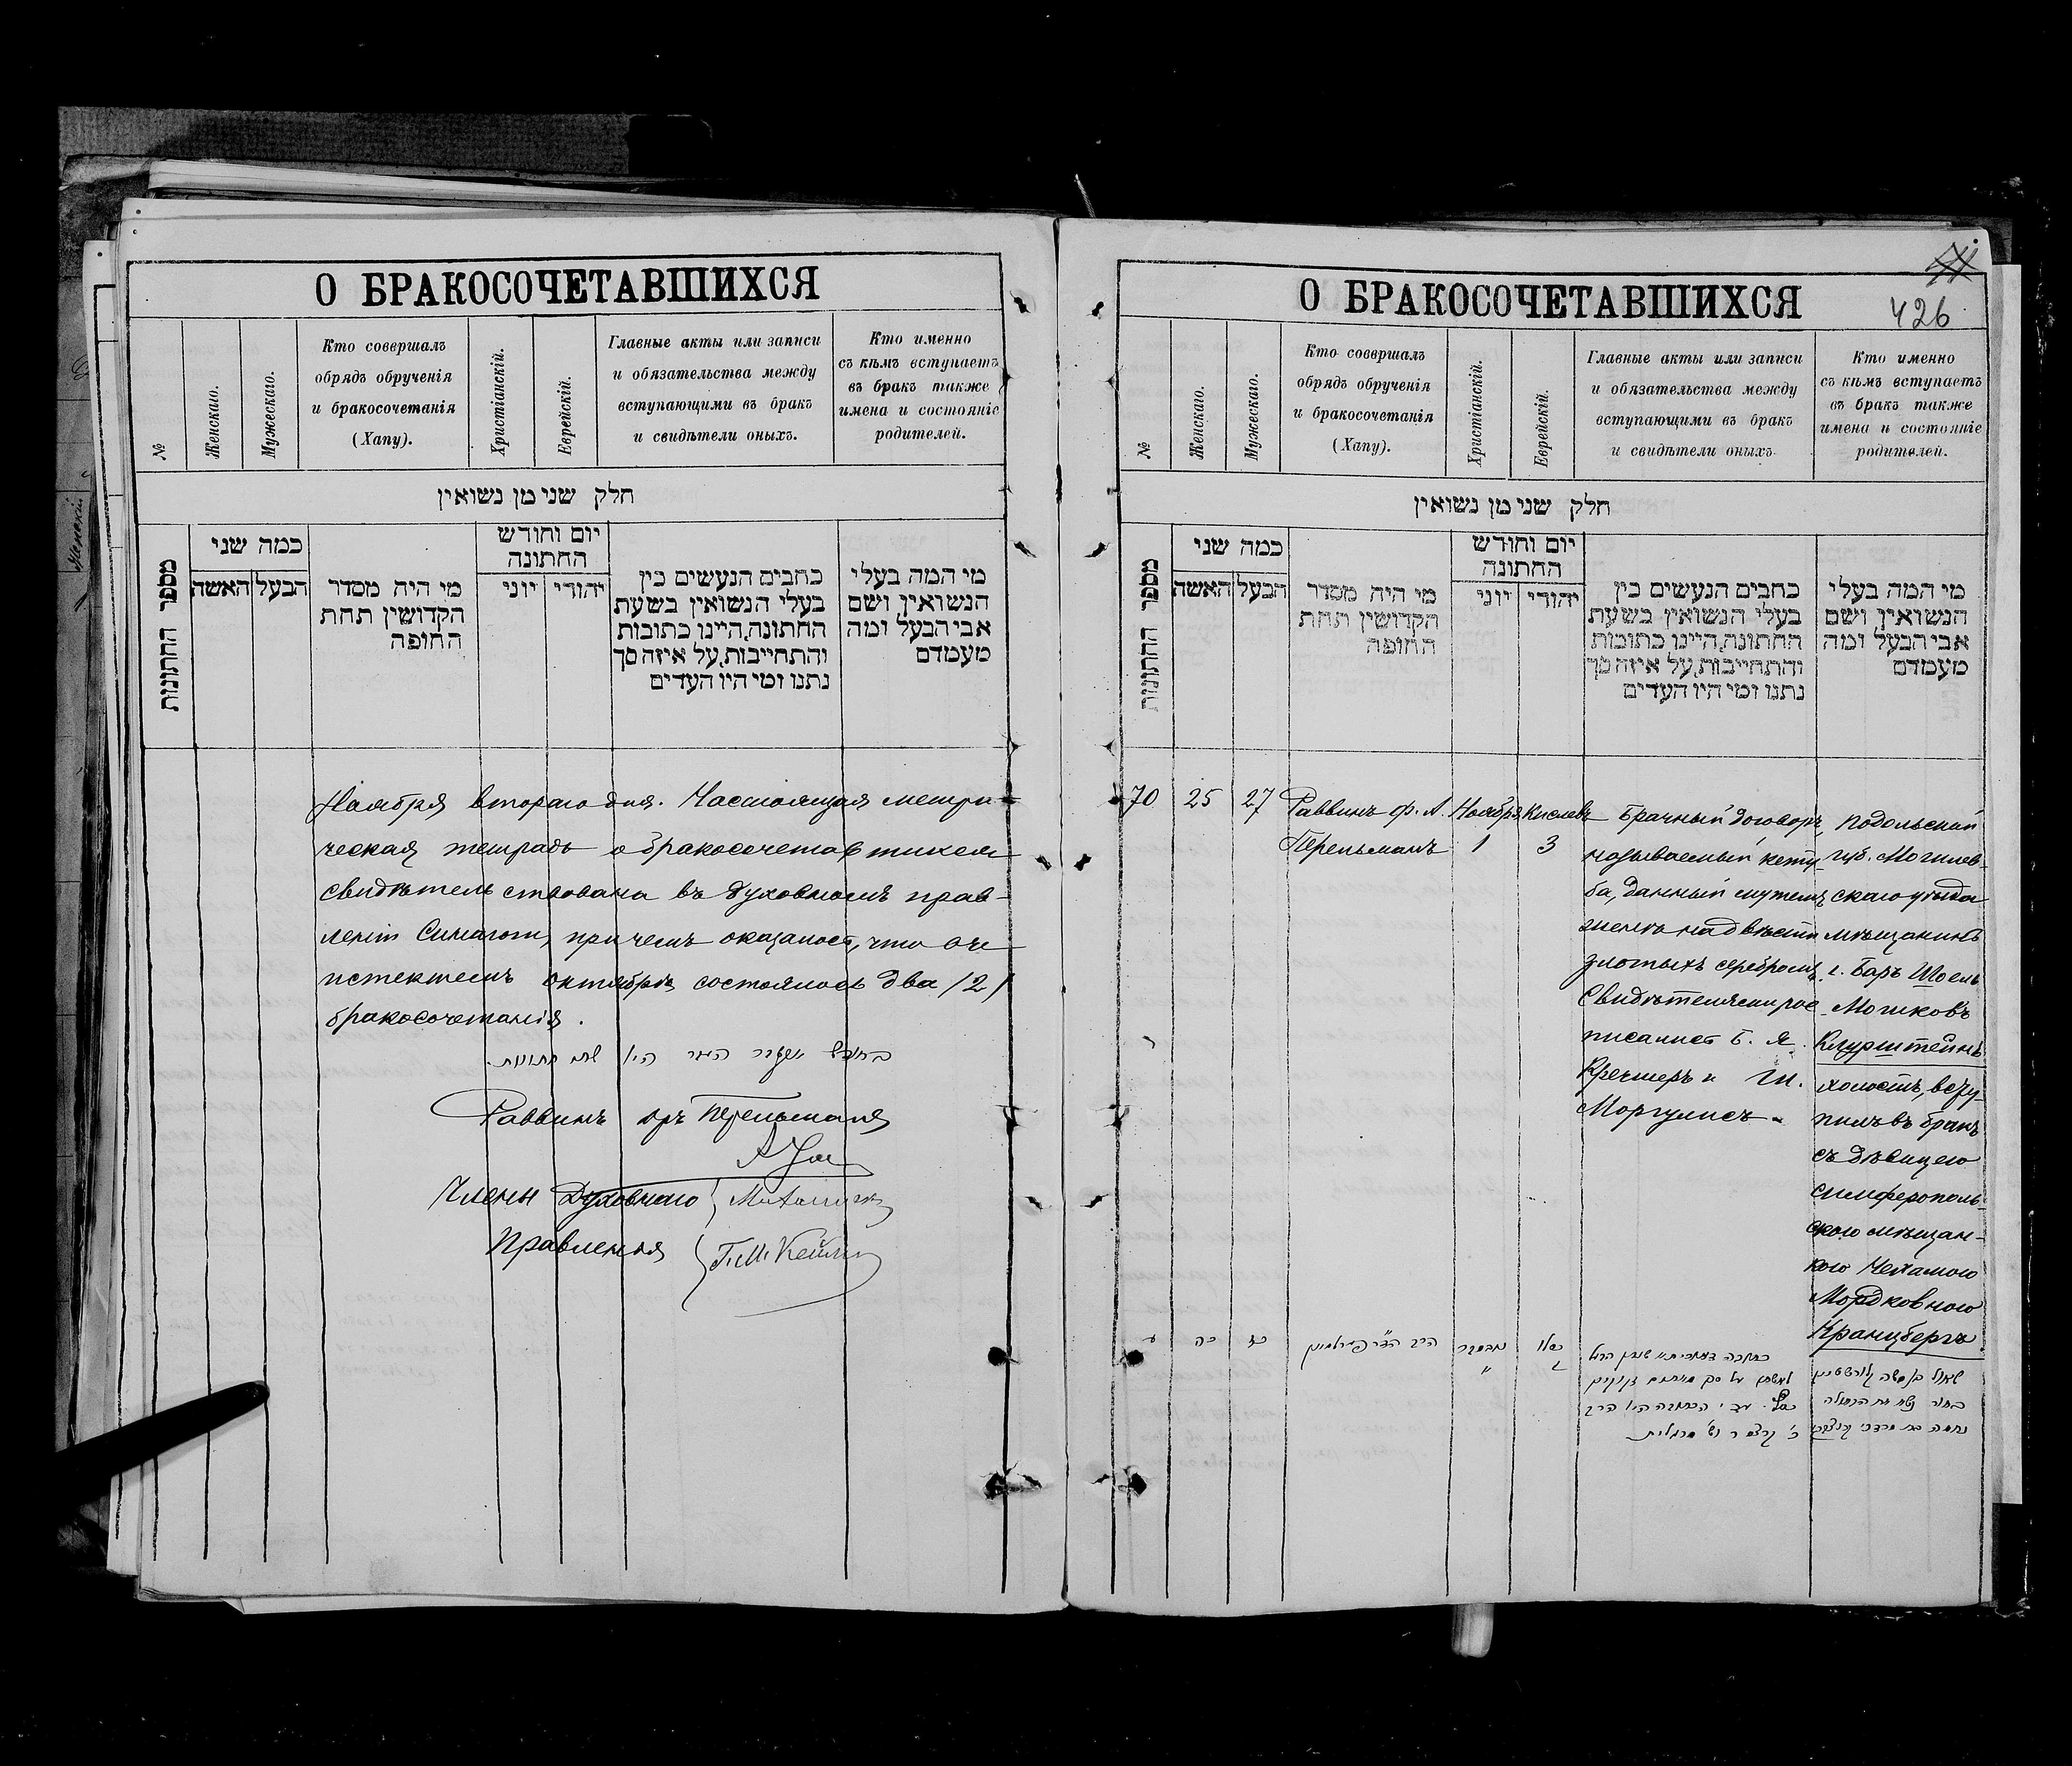 О БРАКОСОЧЕТАВШИХСЯ
№
Женскаго.
Мужескаго.
Кто совершалъ
обрядъ обрученія
и бракосочетанія
(Хапу).
Христіанскій.
Еврейскій.
Главные акты или записи
и обязательства между
вступающими въ бракъ
и свидѣтели оныхъ.
Кто именно
съ кѣмъ вступаетъ
въ бракъ также
имена и состояніе
родителей.
חלק שני מן נשואין
מספר החתונות
כמה שני
האשה
הבעל
מי היה מסדר
הקדושין תחת
החופה
יום וחודש
החתונה
יוני
יהודי
כחבים הנעשים בין
בעלי הנשואין בשעת
החתונה,היינו כתובות
והתחייבות,על איזה סך
נתנו ומי היו העדים
מי המה בעלי
הנשואין, ושם
אבי הבעל ומה
מעמדם
Ноября второго дня. Настоящая метри-
ческая тетрадь о бракосочетавшихся
свидѣтельствована въ Духовномъ прав-
леніи Синагоги, при чемъ оказалось, что въ
истекшемъ октябрѣ состоялось два /2/
бракосочетанія.
היו שתי חתונות.
Раввинъ дръ Перельманъ
Члены Духовнаго
Правленія
О БРАКОСОЧЕТАВШИХСЯ
426
№
Женскаго.
Мужескаго.
Кто совершалъ
обрядъ обрученія
и бракосочетанія
(Хапу).
Христіанскій.
Еврейскій.
Главные акты или записи
и обязательства между
вступающими въ бракъ
и свидѣтели оныхъ.
Кто именно
съ кѣмъ вступаетъ
въ бракъ также
имена и состояніе
родителей.
חלק שני מן נשואין
מספר החתונות
כמה שני
האשה
הבעל
מי היה מסדר
הקדושין תחת
החופה
יום וחודש
החתונה
יוני
יהודי
כחבים הנעשים בין
בעלי הנשואין בשעת
החתונה,היינו כתובות
והתחייבות,על איזה סך
נתנו ומי היו העדים
מי המה בעלי
הנשואין, ושם
אבי הבעל ומה
מעמדם
70
25
27
Раввинъ Ф. А.
Перельманъ
Ноября
1
Кислевъ
3
Брачный договоръ,
называемый кету-
ба, данный мужемъ
женѣ на двѣсти
злотыхъ серебромъ.
Свидѣтелями рос-
писались Б. Я.
Кречмеръ и Ш.
Моргулисъ.
Подольской
губ. Могилев-
скаго уѣзда
мѣщанинъ
г. Баръ Шоель
Мошковъ
Клурштейнъ
холостъ, всту-
пилъ въ бракъ
съ дѣвицею
симферополь-
скою мѣщан-
кою Нехамою
Мордковною
Кранцбергъ
ע
כה
כז
הרב הד״ר פערלמאן
נאבמבר
כסלו
שאול בן משה קלורשטיין
בחור נשא את הבתולה
נחמה בת מרדכי קרנצברג